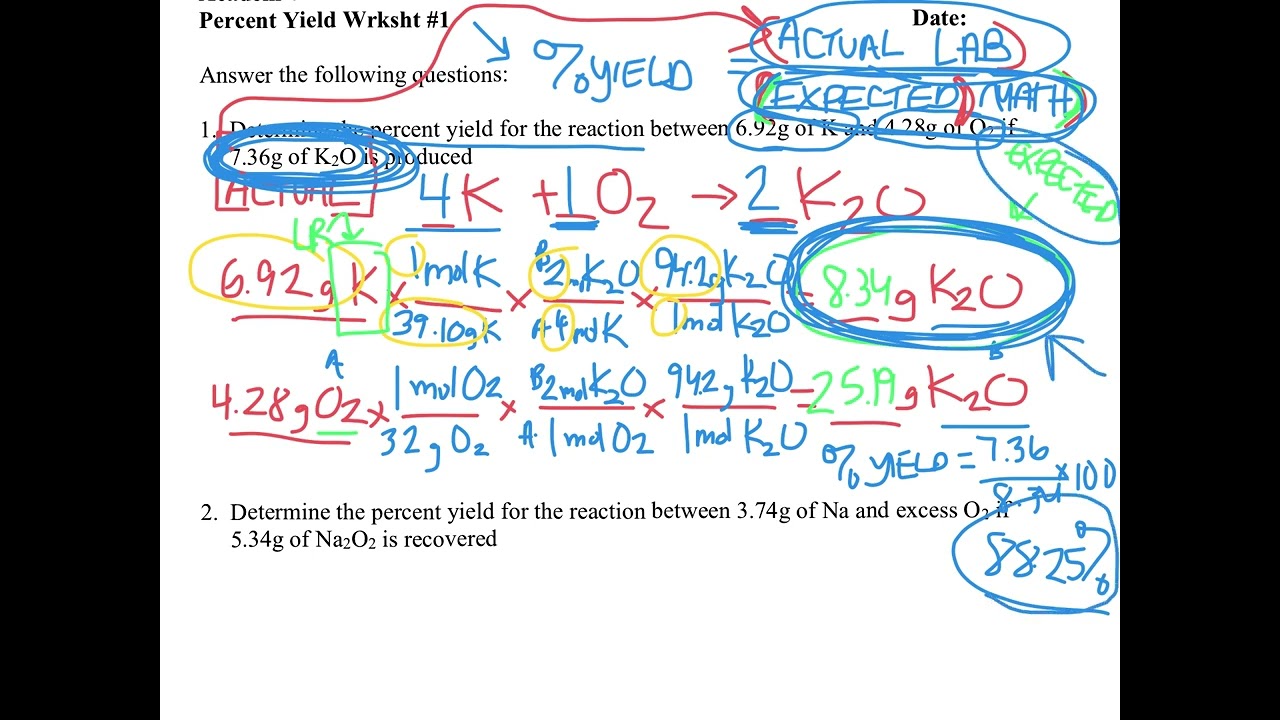 Percent Yield Wrksht #1
Date:
Answer the following questions:
% YIELD = ACTUAL LAB
EXPECTED MATH
1. Determine the percent yield for the reaction between 6.92g of K and 4.28g of O₂ if
7.36g of K₂O is produced
EXPECTED
ACTUAL
4K + 1O₂ → 2K₂O
LR
6.92g K × 1 mol K / 39.10g K × B 2 mol K₂O / A 4 mol K × 94.2g K₂O / 1 mol K₂O = 8.34g K₂O
A
B
4.28g O₂ × 1 mol O₂ / 32g O₂ × B 2 mol K₂O / A 1 mol O₂ × 94.2g K₂O / 1 mol K₂O = 25.19g K₂O
% YIELD = 7.36 / 8.34 × 100
88.25%
2. Determine the percent yield for the reaction between 3.74g of Na and excess O₂ if
5.34g of Na₂O₂ is recovered